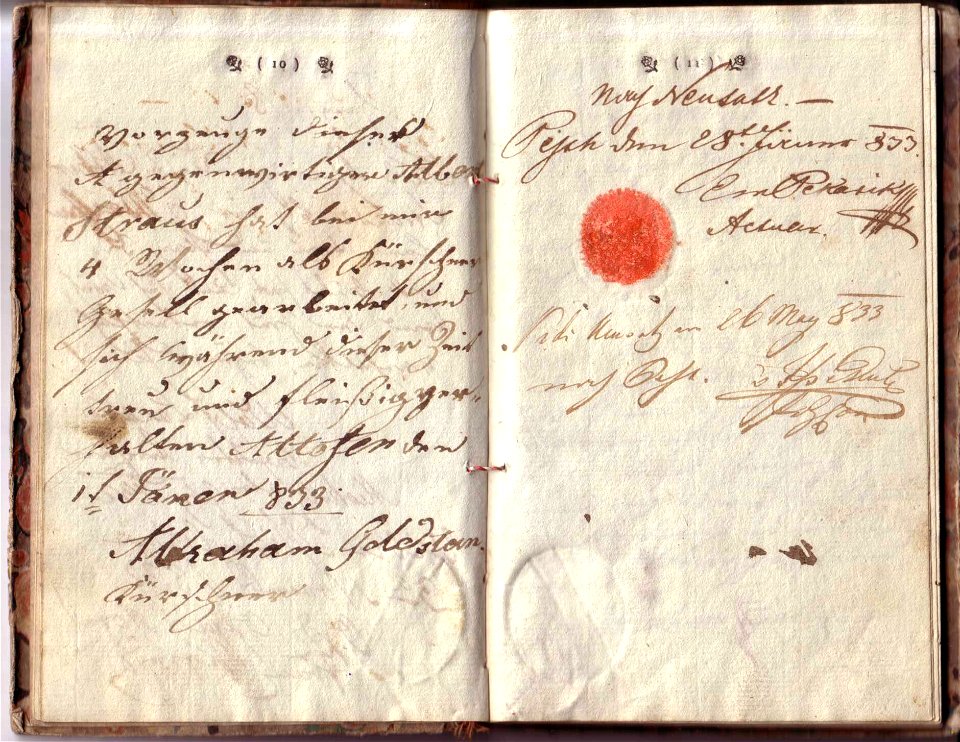 ( 10 )
Vorzeuge dieses
gegenwirtiger Alber
Straus hat bei mir
4 Wochen als Kürschner
Gesell gearbeitet und
sich während dieser Zeit
treu und fleißig ger-
halten Altofen den
1t Jäner 833
Abraham Goldstan.
Kürschner
( 11 )
Nach Neusatz. —
Pesth den 28t 833.
Actuar.
26 May 833
nach